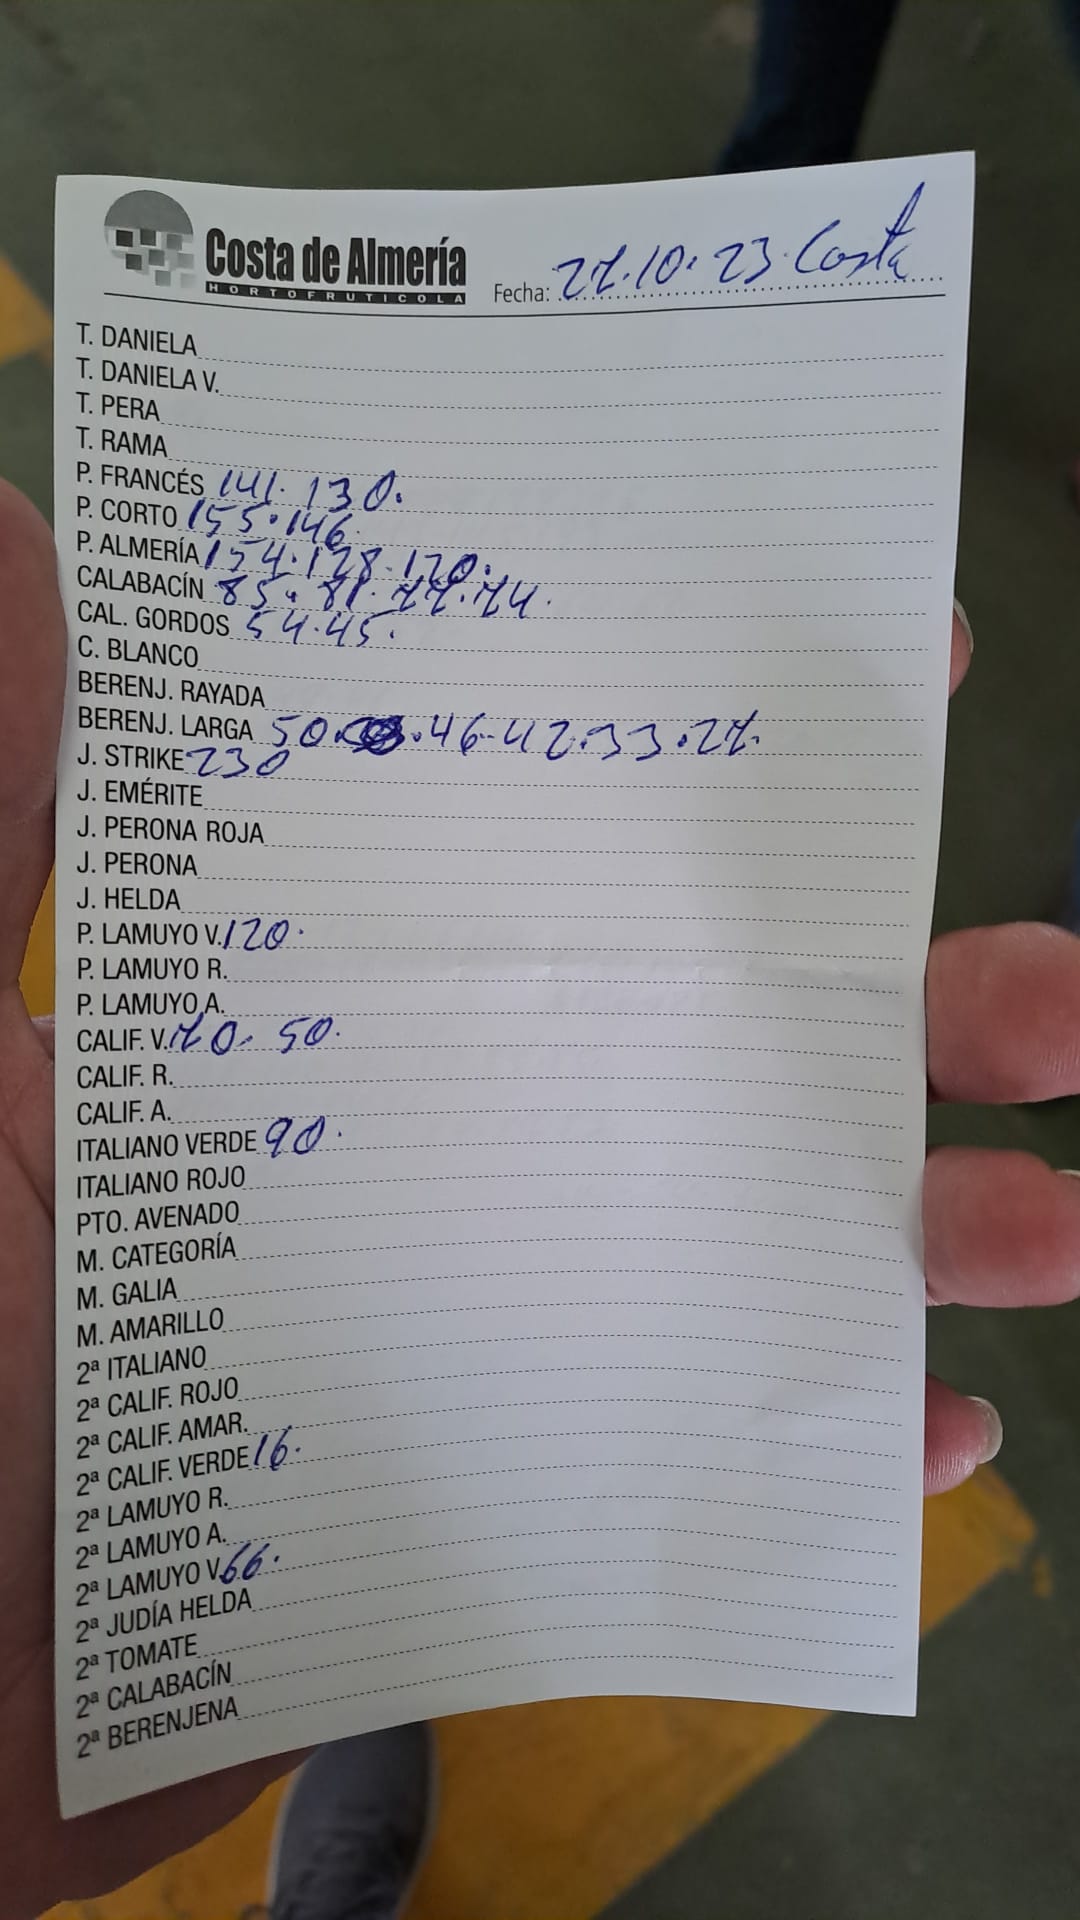 Costa de Almería
HORTOFRUTICOLA
Fecha: 27.10.23. Costa
T. DANIELA
T. DANIELA V.
T. PERA
T. RAMA
P. FRANCÉS 141. 130.
P. CORTO 155.146.
P. ALMERÍA 154.128.120.
CALABACÍN 85. 81. 77.74.
CAL. GORDOS 54.45.
C. BLANCO
BERENJ. RAYADA
BERENJ. LARGA 50. .46-42.33.27.
J. STRIKE 230
J. EMÉRITE
J. PERONA ROJA
J. PERONA
J. HELDA
P. LAMUYO V. 120.
P. LAMUYO R.
P. LAMUYO A.
CALIF. V. 70. 50.
CALIF. R.
CALIF. A.
ITALIANO VERDE 90.
ITALIANO ROJO
PTO. AVENADO
M. CATEGORÍA
M. GALIA
M. AMARILLO
2ª ITALIANO
2ª CALIF. ROJO
2ª CALIF. AMAR.
2ª CALIF. VERDE 16.
2ª LAMUYO R.
2ª LAMUYO A.
2ª LAMUYO V. 66.
2ª JUDÍA HELDA
2ª TOMATE
2ª CALABACÍN
2ª BERENJENA